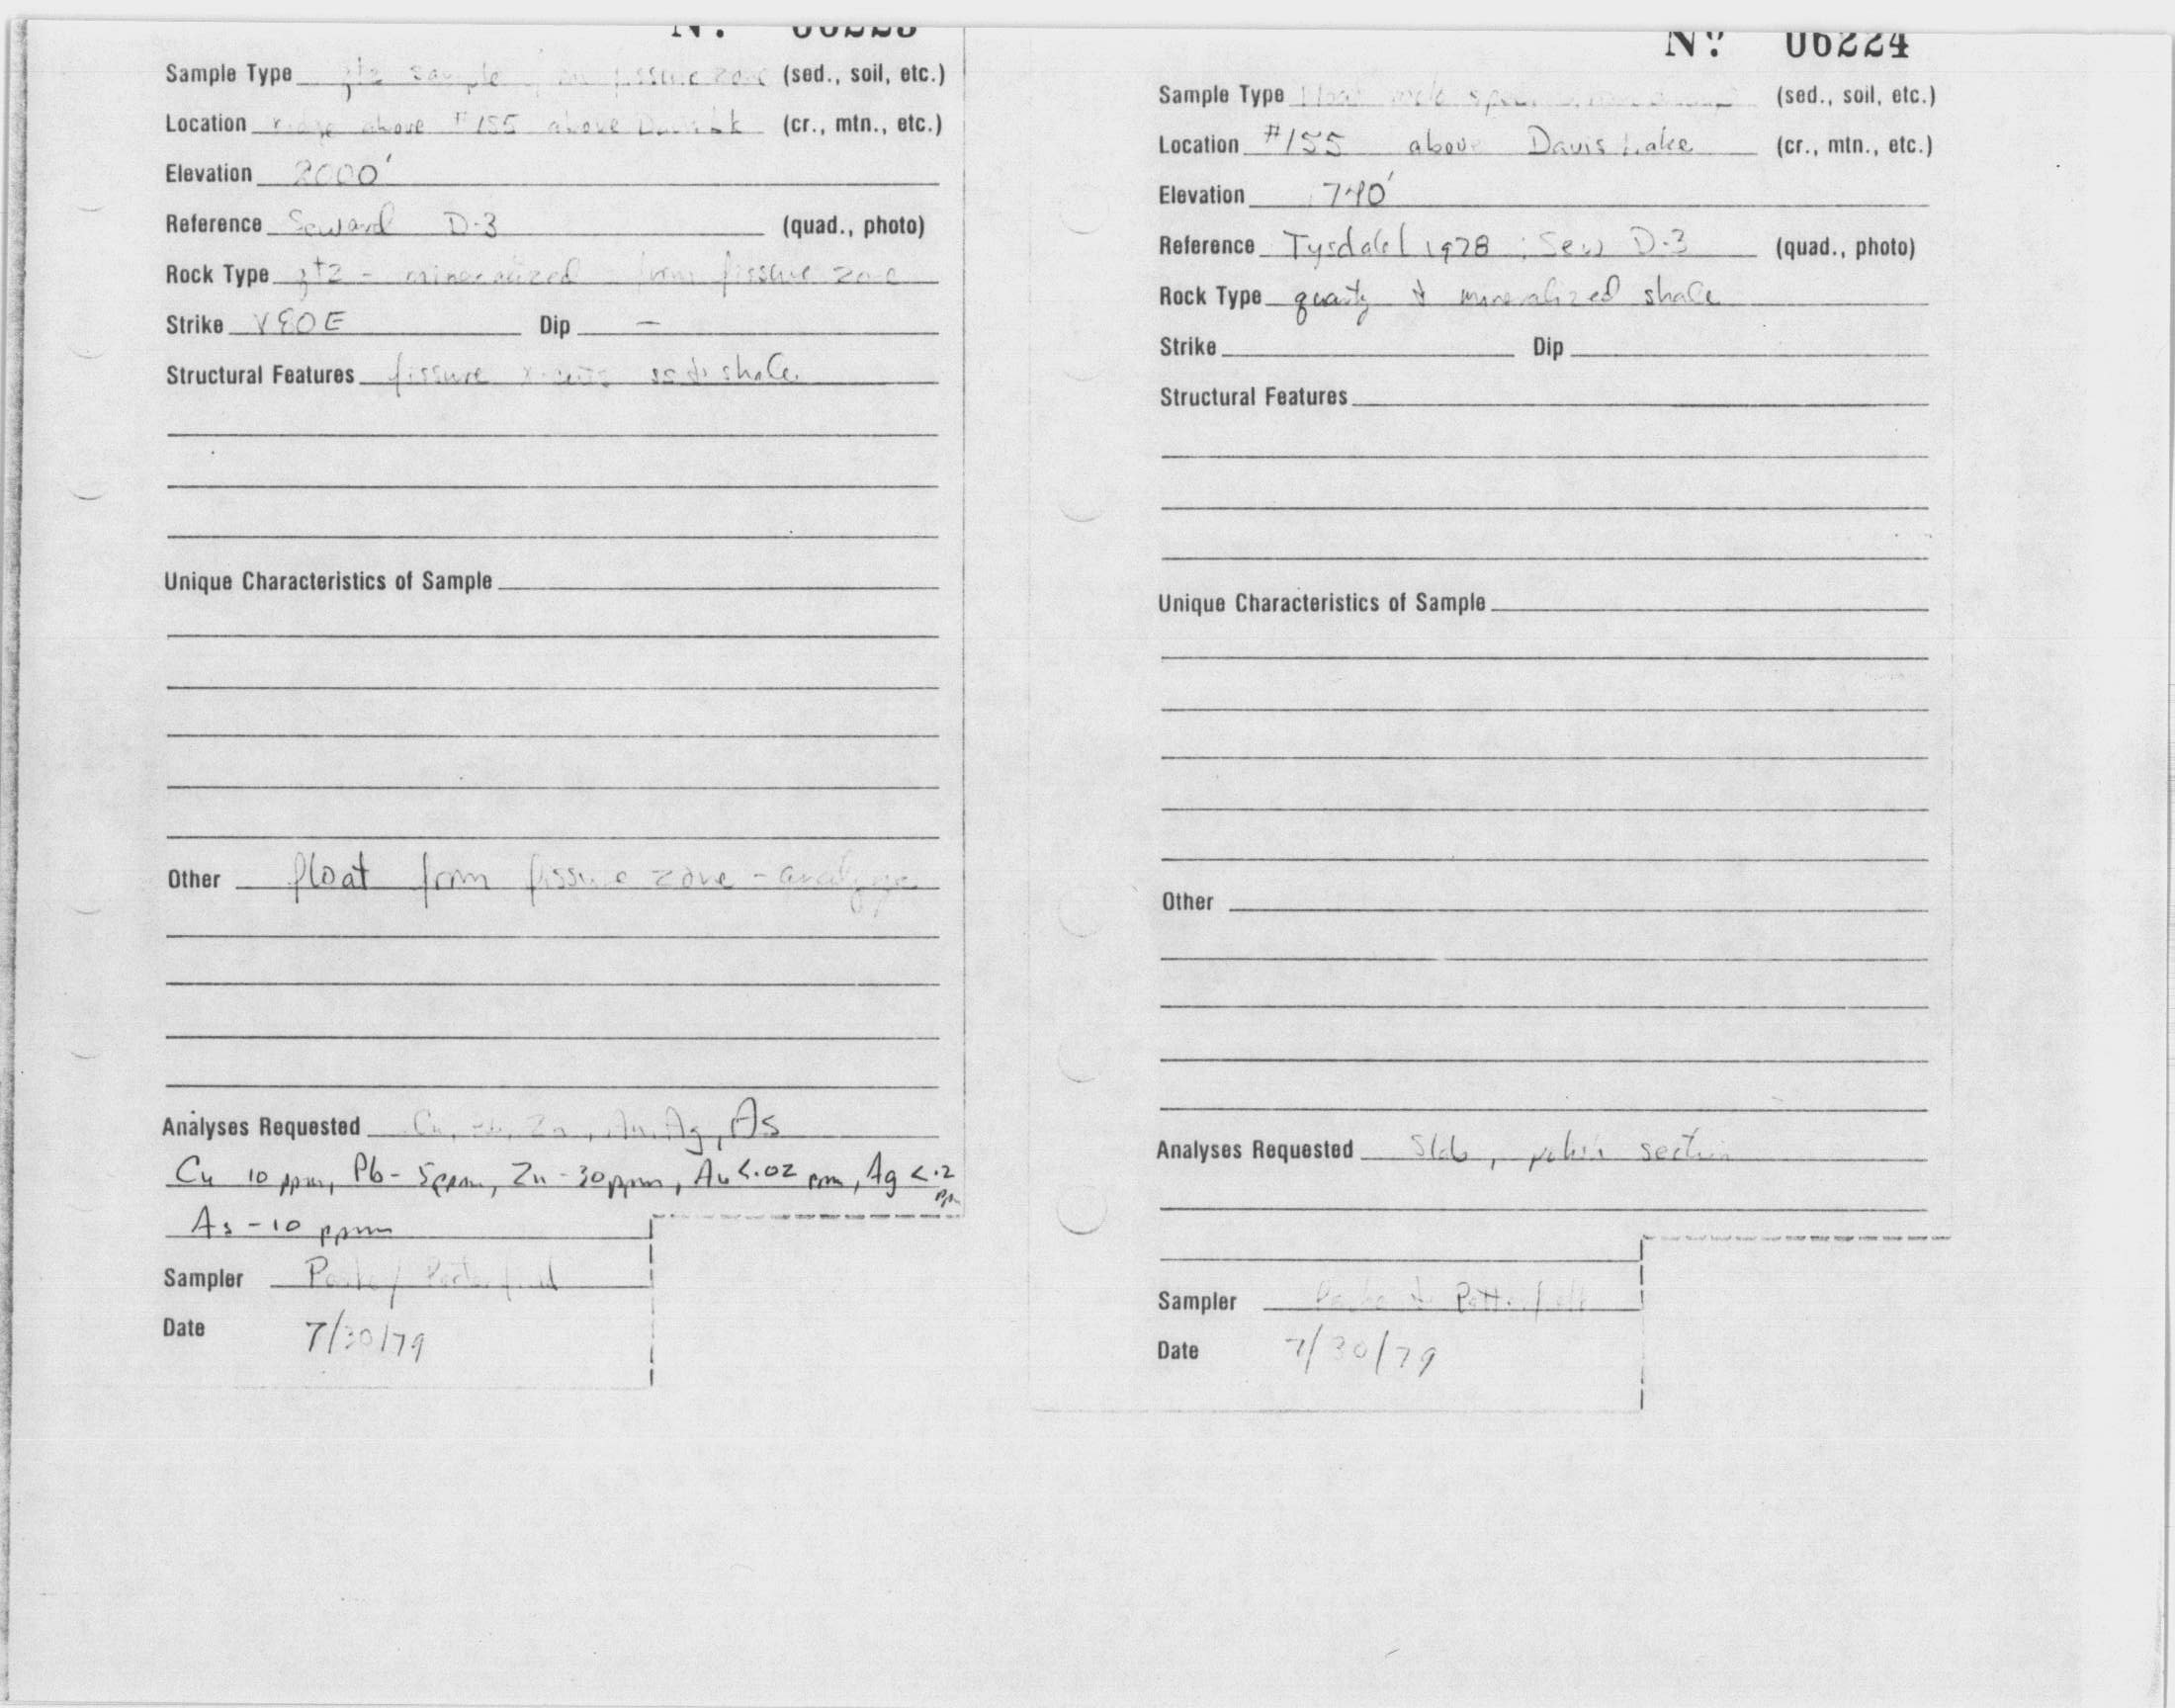 Nº
Sample Type qtz sample fissure zone (sed., soil, etc.)
Location ridge above #155 above (cr., mtn., etc.)
Elevation 2000'
Reference Seward D-3 (quad., photo)
Rock Type qtz - mineralized from fissure zone
Strike 80E Dip —
Structural Features fissure shale
Unique Characteristics of Sample
Other float from fissure zone - analyze
Analyses Requested Cu, Pb, Zn, Au, Ag, As
Cu 10 ppm, Pb - 5ppm, Zn - 30ppm, Au <.02 ppm, Ag <.2 ppm
As - 10 ppm
Sampler
Date 7/30/79
Nº 06224
Sample Type (sed., soil, etc.)
Location #155 above Davis Lake (cr., mtn., etc.)
Elevation 740'
Reference 1978 ; Sew D-3 (quad., photo)
Rock Type quartz & mineralized shale
Strike Dip
Structural Features
Unique Characteristics of Sample
Other
Analyses Requested Slab, section
Sampler
Date 7/30/79